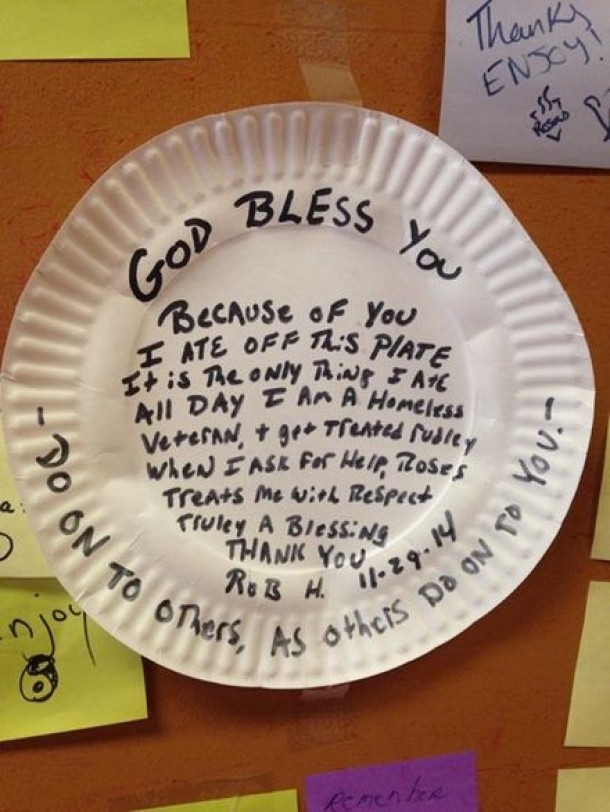 Thanks
ENJOY!
Rosas
GOD BLESS YOU
BECAUSE OF YOU
I ATE OFF THiS PLATE
It is The only Thing I Ate
All DAY I Am A Homeless
VeterAN, + get Treated rudley
when I ASK For Help, Roses
Treats Me with Respect
Truley A Blessing
THANK YOU
RoB H. 11-29-14
- DO ON TO OThers, AS oThers DO ON TO YOU. -
njoy
Remember